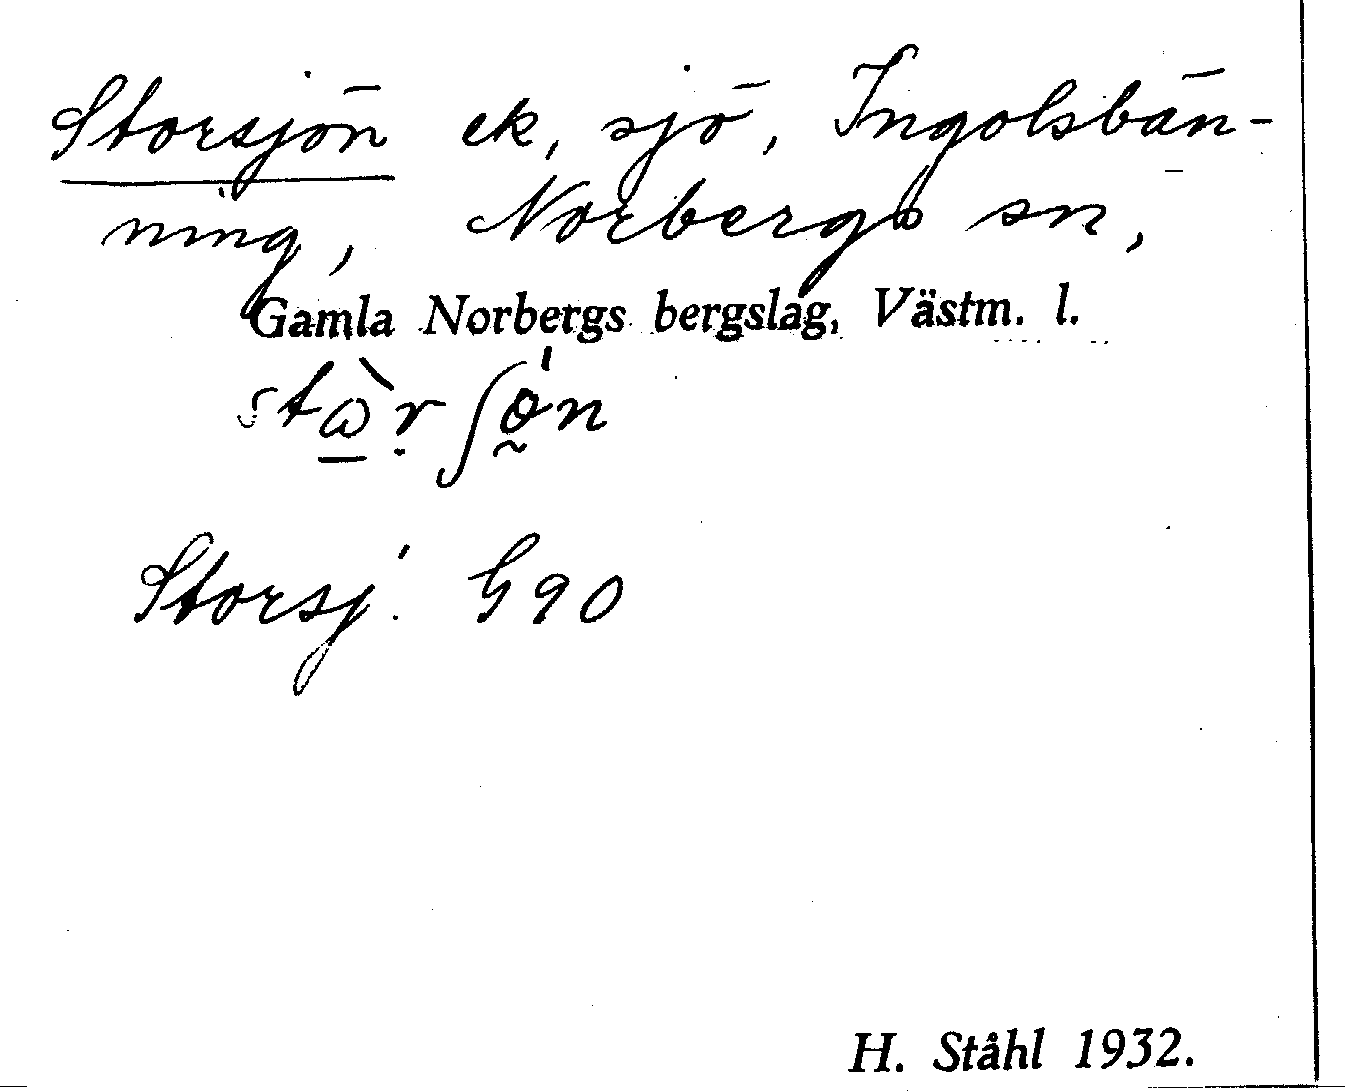 Storsjön ek, sjö, Ingolsbän-
ning, Norbergs sn,
Gamla Norbergs bergslag, Västm. l.
Storsj. G90
H. Ståhl 1932.